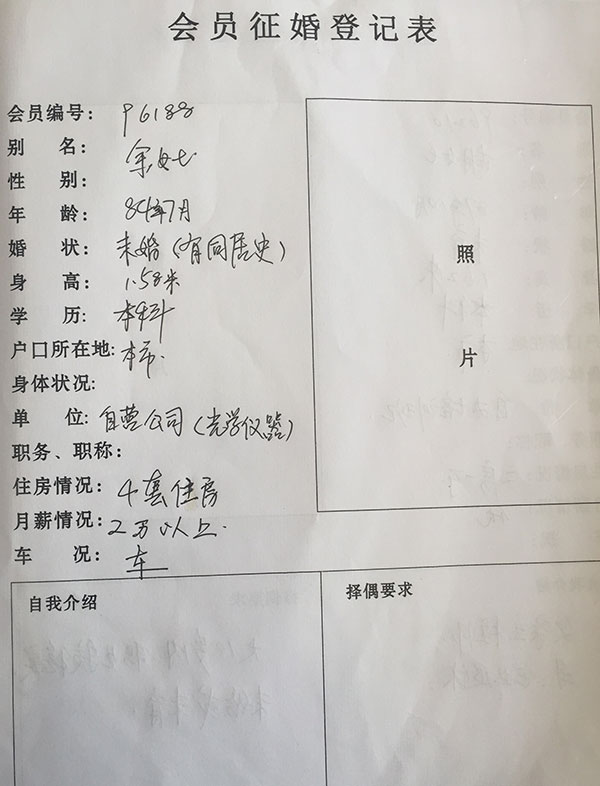 会员征婚登记表
会员编号： 96188
别 名： 余女士
性 别：
年 龄： 84年7月
婚 状： 未婚（有同居史）
身 高： 1.58米
学 历： 本科
户口所在地: 本市.
身体状况:
单 位: 自营公司（光学仪器）
职务、职称：
住房情况： 十套住房
月薪情况: 2万以上.
车 况： 车
照
片
自我介绍
择偶要求